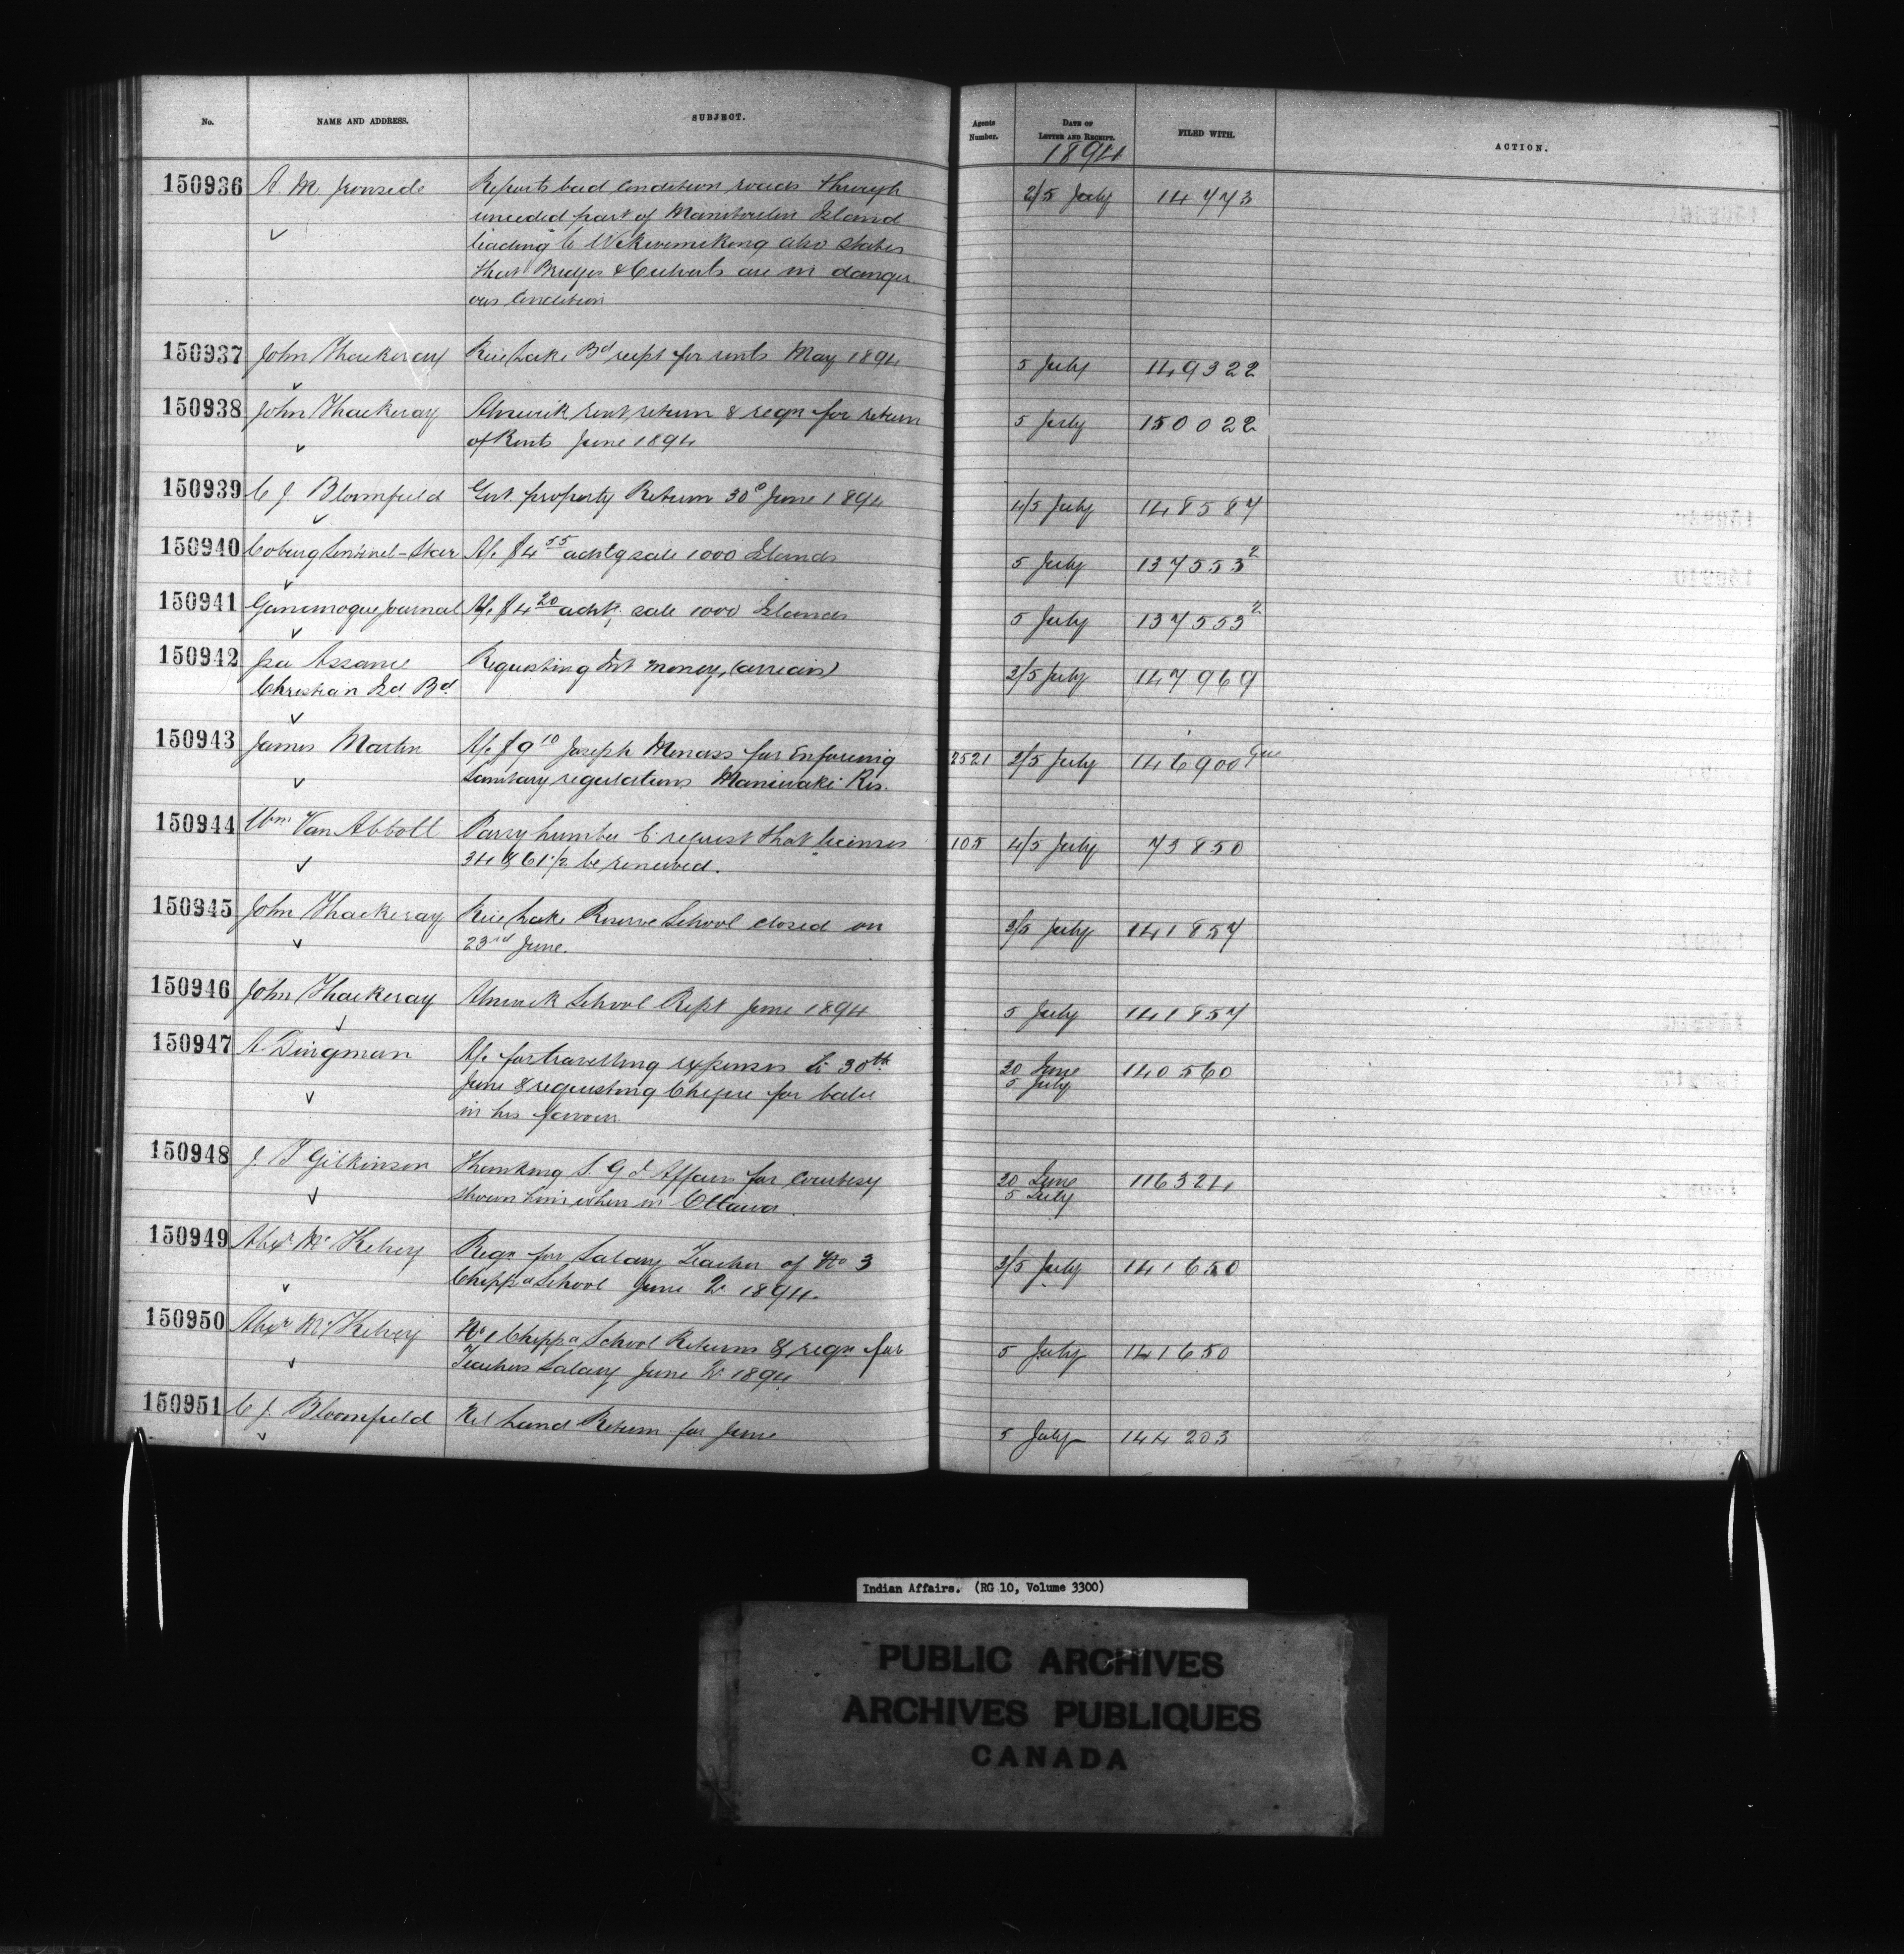 No. NAME AND ADDRESS. SUBJECT. Agents Number. DATE OF LETTER AND RECEIPT. FILED WITH. ACTION.
1894
150936 A. M. Ironside Reports bad condition roads through 2/5 July 14773
unceded part of Manitoulin Island
leading to Wikwemikong also states
that Bridges & Culverts are in danger
ous condition
150937 John Thackeray Rice Lake Bd rect for rents May 1894 5 July 149322
150938 John Thackeray Alnwick rent return & reqn for return 5 July 150022
of Rents June 1894
150939 C J Bloomfield Govt. property Return 30 June 1894 4/5 July 148587
150940 Coburg Sentinel-Star A/c $4 55 advtg sale 1000 Islands 5 July 137553 2
150941 Gananoque Journal A/c $4 20 advt. sale 1000 Islands 5 July 137553 2
150942 Assance Requesting Int money, (arrears) 3/5 July 147969
Christian Isd Bd
150943 James Martin A/c $9 10 Joseph Menass for Enforcing 2521 3/5 July 146900
Sanitary regulations Maniwaki Res.
150944 Wm Van Abbott Parry Lumber Co request that licenses 105 4/5 July 73850
34 & 61 1/2 be renewed.
150945 John Thackeray Rice Lake Reserve School closed on 3/5 July 141857
23rd June.
150946 John Thackeray Alnwick School Rept June 1894 5 July 141857
150947 A. Dingman A/c for travelling expenses to 30th 20 June 140560
June & requesting Cheque for balce 5 July
in his favour
150948 J. T Gilkinson Thanking S. G I Affairs for courtesy 20 June 116324
shown him when in Ottawa. 5 July
150949 Alexr McKelvey Reqn for Salary Teacher of No 3 3/5 July 141650
Chippa School June Qr 1894.
150950 Alexr McKelvey No 1 Chippa School Returns & reqn for 5 July 141650
Teachers Salary June Qr 1894
150951 C J. Bloomfield Land Return for June 5 July 144203
Indian Affairs. (RG 10, Volume 3300)
PUBLIC ARCHIVES
ARCHIVES PUBLIQUES
CANADA